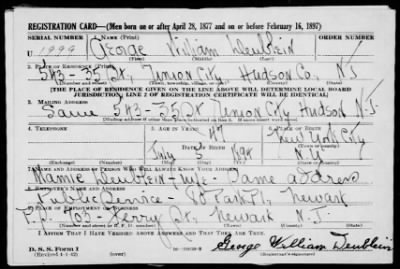 REGISTRATION CARD—(Men born on or after April 28, 1877 and on or before February 16, 1897)
SERIAL NUMBER 1. NAME (Print) ORDER NUMBER
U 1999 George William Deublein
(First) (Middle) (Last)
2. PLACE OF RESIDENCE (Print)
343-35 St, Union City Hudson Co, N.J.
[THE PLACE OF RESIDENCE GIVEN ON THE LINE ABOVE WILL DETERMINE LOCAL BOARD
JURISDICTION; LINE 2 OF REGISTRATION CERTIFICATE WILL BE IDENTICAL]
3. MAILING ADDRESS
Same 343-35 St Union City Hudson N.J.
4. TELEPHONE 5. AGE IN YEARS 6. PLACE OF BIRTH
47 New York City
DATE OF BIRTH
July 5 N.Y.
7. NAME AND ADDRESS OF PERSON WHO WILL ALWAYS KNOW YOUR ADDRESS
Mamie Deublein - wife - Same address
8. EMPLOYER'S NAME AND ADDRESS
Public Service - 80 Park Pl, Newark
9. PLACE OF EMPLOYMENT OR BUSINESS
Ferry St, Newark N.J.
I AFFIRM THAT I HAVE VERIFIED ABOVE ANSWERS AND THAT THEY ARE TRUE.
D. S. S. Form 1
(Revised 4-1-42)
George William Deublein